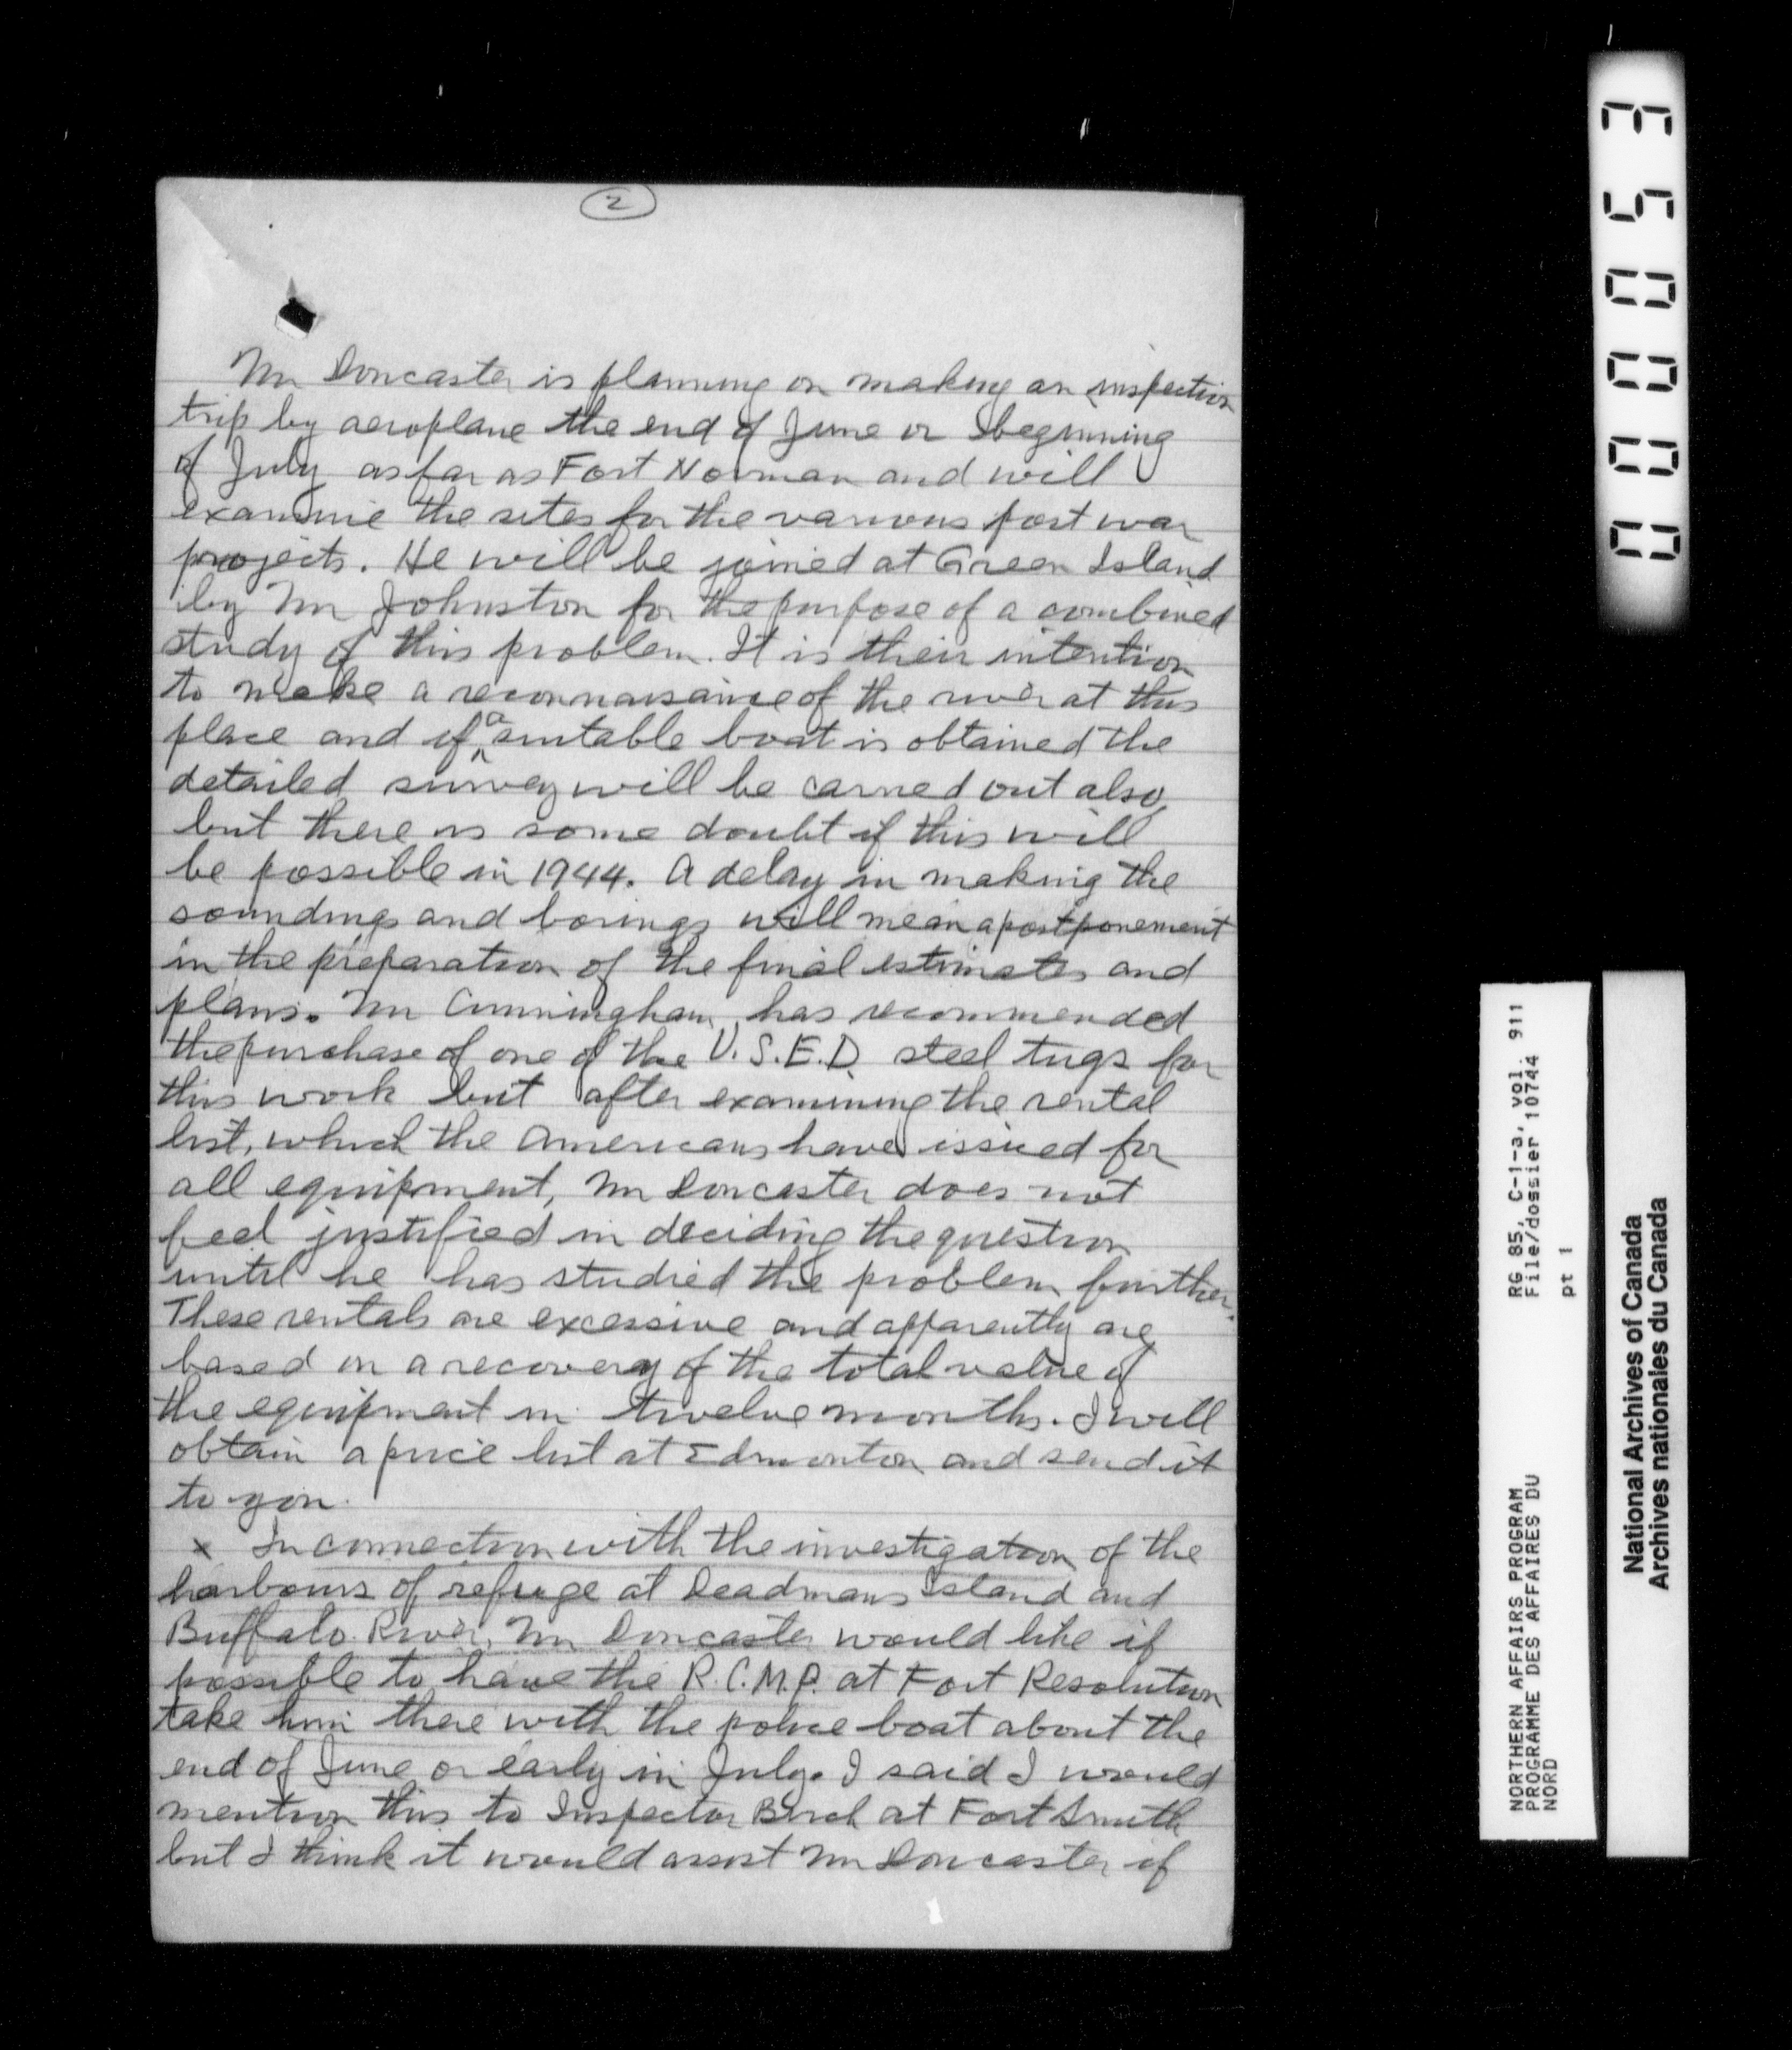 2
Mr Doncaster is planning on making an inspection
trip by aeroplane the end of June or beginning
of July as far as Fort Norman and will
examine the sites for the various post war
projects. He will be joined at Green Island
by Mr Johnston for the purpose of a combined
study of this problem. It is their intention
to make a reconnaisaince of the river at this
place and if a suitable boat is obtained the
detailed survey will be carried out also,
but there is some doubt if this will
be possible in 1944. A delay in making the
soundings and borings will mean a postponement
in the preparation of the final estimates and
plans. Mr Cunningham has recommended
the purchase of one of the U.S.E.D. steel tugs for
this work but after examining the rental
list, which the Americans have issued for
all equipment, Mr Doncaster does not
feel justified in deciding the question
until he has studied the problem further.
These rentals are excessive and apparently are
based on a recovery of the total value of
the equipment in twelve months. I will
obtain a price list at Edmonton and send it
to you.
x In connection with the investigation of the
harbours of refuge at Deadmans Island and
Buffalo River, Mr Doncaster would like if
possible to have the R.C.M.P. at Fort Resolution
take him there with the police boat about the
end of June or early in July. I said I would
mention this to Inspector at Fort Smith
but I think it would assist Mr Doncaster if
000053
RG 85, C-1-a, vol. 911
File/dossier 10744
pt 1
NORTHERN AFFAIRS PROGRAM
PROGRAMME DES AFFAIRES DU
NORD
National Archives of Canada
Archives nationales du Canada